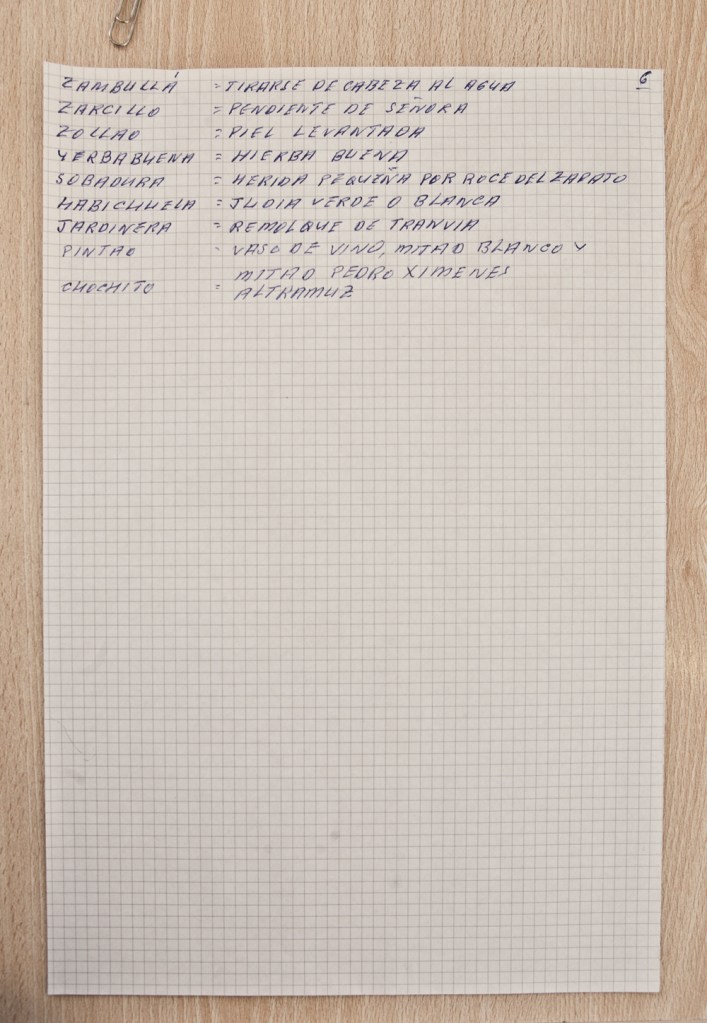 6
ZAMBULLÁ = TIRARSE DE CABEZA AL AGUA
ZARCILLO = PENDIENTE DE SEÑORA
ZOLLAO = PIEL LEVANTADA
YERBABUENA = HIERBA BUENA
SOBADURA = HERIDA PEQUEÑA POR ROCE DEL ZAPATO
HABICHUELA = JUDIA VERDE O BLANCA
JARDINERA = REMOLQUE DE TRANVIA
PINTAO - VASO DE VINO, MITAD BLANCO Y
MITAD PEDRO XIMENES
CHOCHITO = ALTRAMUZ